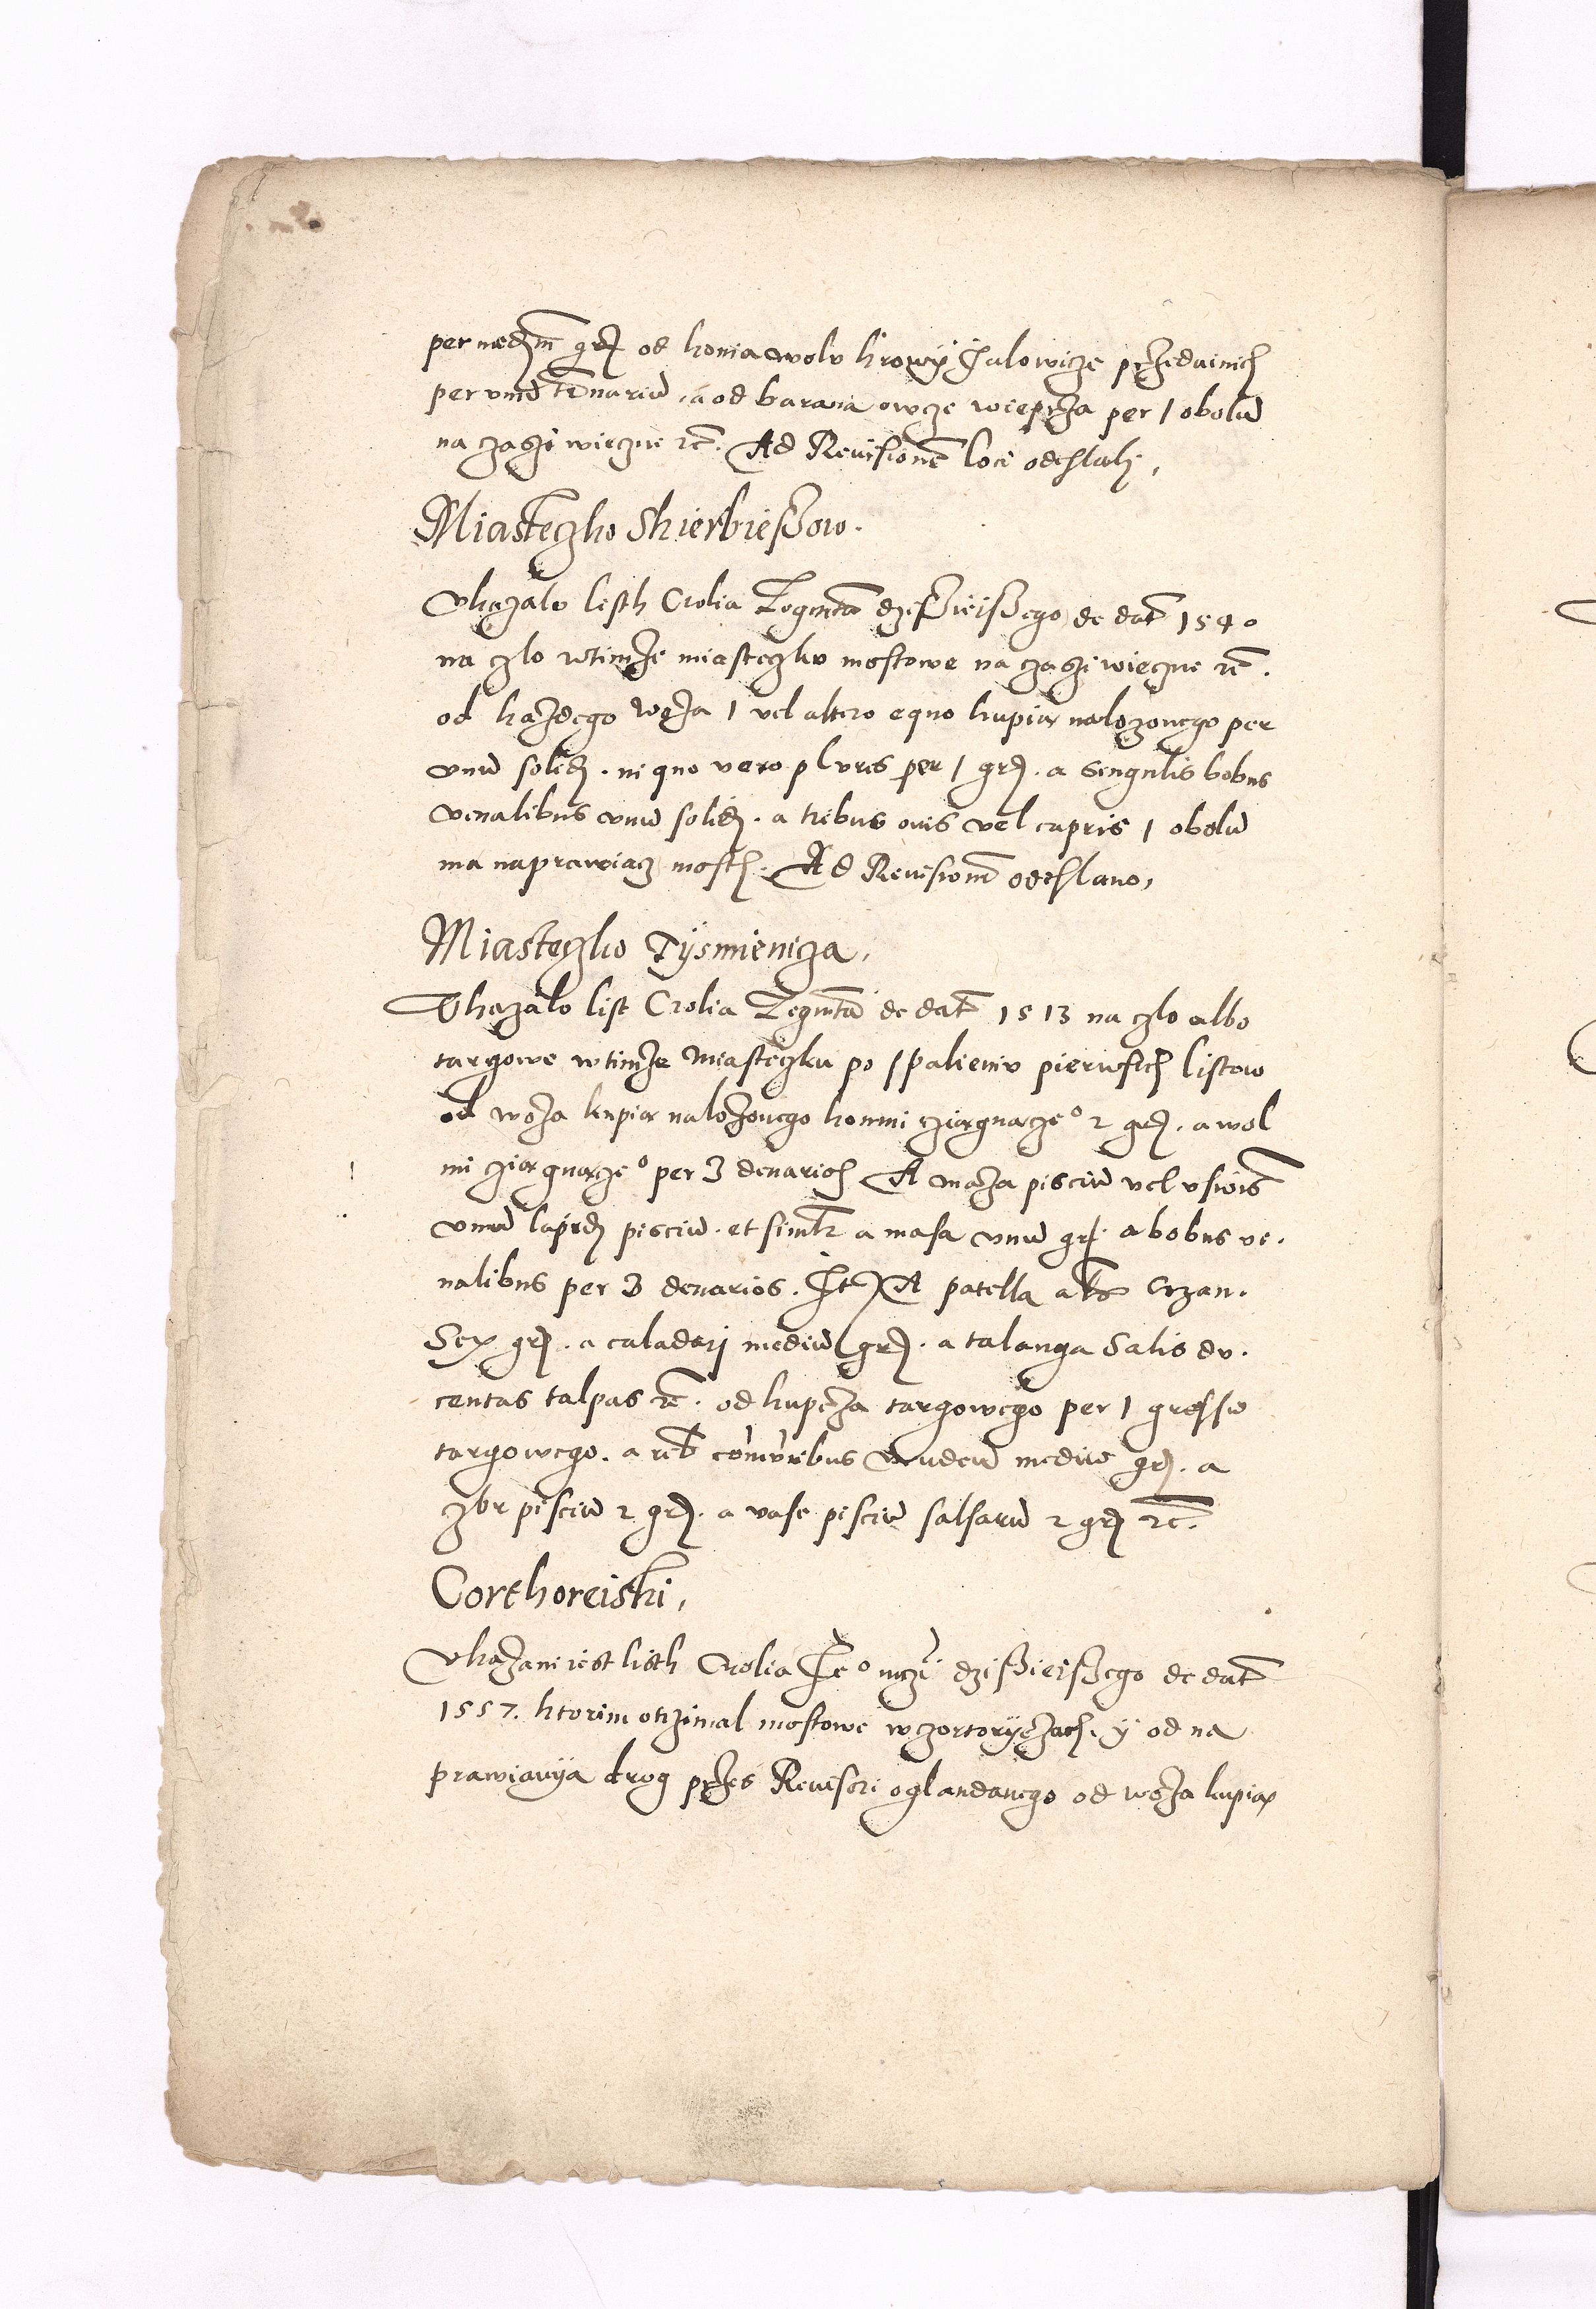 per medm̄ grꝭ od konia wolu krowÿ Jalowicze przedainich
per vnū tēnariū, a od barana owcze wieprza per 1 obolū
na czaszi wieczne rc̄. Ad Reuisionē loci odeslali,
Miasteczko Skierbieszow.
Vkazalo listh Crolia Zogmta dzisieiszego de dat 1540
na czlo wtimze miasteczku mostowe na czaszi wieczne rc̄.
od kazdego woza 1 vel altero equo kupią nalozonego per
vnū solid. in quo vero plures per 1 grꝭ. a singulis bobus
venalibus vnū solid. a tribus ouis vel capris 1 obolū
ma naprawiacz mosth. Ad Reuisionē odeslano,
Miasteczko Tÿsmienicza,
Vkazalo list Crolia Zegmta de dat 1513 na czlo albo
targowe wtimze Miasteczku po spalieniu pierwsich listow
od woza kupią nalozonego konmi cziągnącze° 2 grꝭ. a wol
mi cziągnącze° per 3 denarios A maza pisciū vel vsionis
vnum lapid pisciū. et simlr a masa vnū grꝭ. a bobus ve.
nalibus per 3 denarios. It A patella als Crzan.
Sex grꝭ. a caladarj mediū grꝭ. a talanga Salis du.
centas talpas rc̄. od kupcza targowego per 1 grossu
targowego. a reb cōmunibus vendend mediū grꝭ. a
zbr pisciū 2 grꝭ. a vase pisciū salsarū 2 grꝭ rc̄.
Corthoreiski,
Vkazani iest listh Crolia Je° mczi dzisieiszego de dat
1557. ktorim otrzimal mostowe w czortorÿczach. ÿ od na
prawianÿa drog przes Reuisori oglandanego od woza kupią